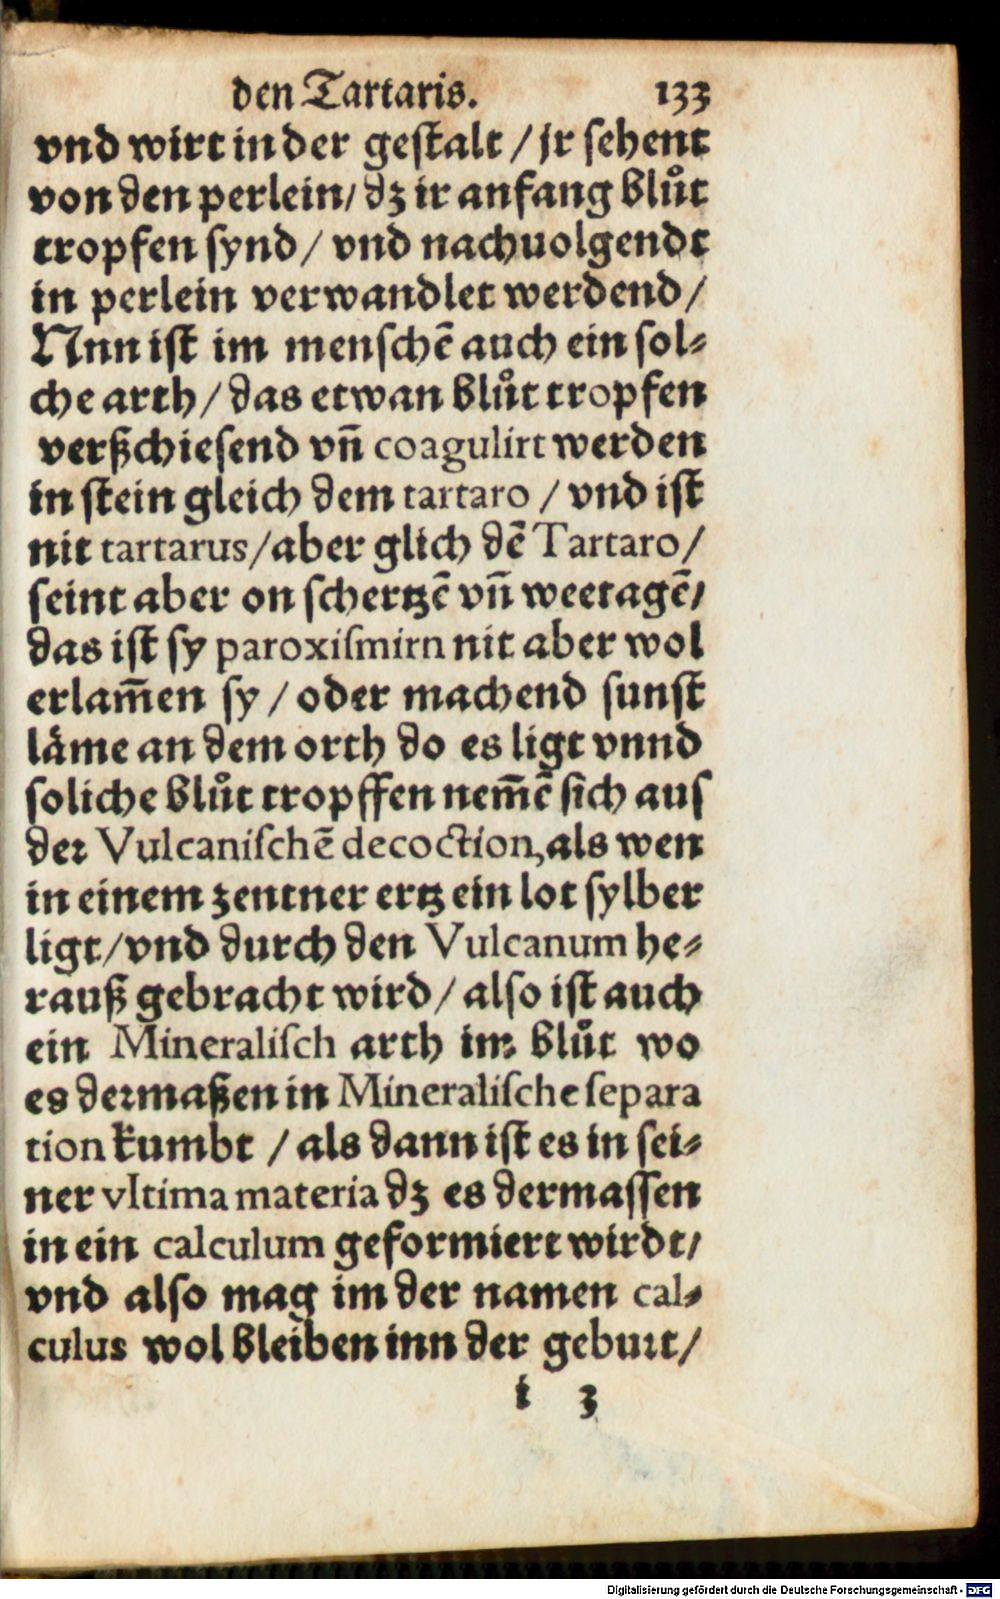 den Tartaris. 133
vnd wirt in der gestalt / jr sehent
von den perlein / dz ir anfang blůt
tropfen synd / vnd nachuolgendt
in perlein verwandlet werdend /
Nnn ist im menschē auch ein sol⸗
che arth / das etwan blůt tropfen
verßchiesend vn̄ coagulirt werden
in stein gleich dem tartaro / vnd ist
nit tartarus / aber glich dē Tartaro /
seint aber on schertzē vn̄ weetagē /
das ist sy paroxiſmirn nit aber wol
erlam̄en sy / oder machend sunst
läme an dem orth do es ligt vnnd
soliche blůt tropffen nem̄ē sich aus
der Vulcaniſchē decoction, als wen
in einem zentner ertz ein lot sylber
ligt / vnd durch den Vulcanum he⸗
rauß gebracht wird / also ist auch
ein Mineraliſch arth im blůt wo
es dermaßen in Mineraliſche ſepara
tion kumbt / als dann ist es in sei⸗
ner vltima materia dz es dermassen
in ein calculum geformiert wirdt /
vnd also mag im der namen cal⸗
culus wol bleiben inn der geburt /
k 3
Digitalisierung gefördert durch die Deutsche Forschungsgemeinschaft - DFG